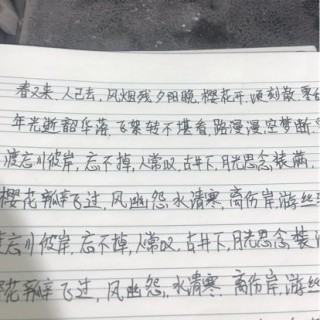 春又来,人已去,风烟残,夕阳晚,樱花开,顷刻散,
年光逝韶华落,飞絮转不堪看,路漫漫,空梦断
渡忘川彼岸,忘不掉,人常叹,古井下,月光思念装满,
樱花瓢飞过,风幽怨,水清寒,离伤岸,游丝
忘川彼岸,忘不掉,人常叹,古井下,月光思念装
花瓢飞过,风幽怨,水清寒,离伤岸,游丝